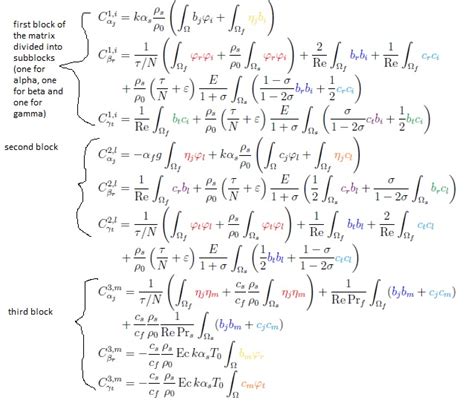 first block of
the matrix
divided into
subblocks
(one for
alpha, one
for beta and
one for
gamma)
C_{α_j}^{1,i} = kα_s \frac{ρ_s}{ρ_0} ( ∫_Ω b_jφ_i + ∫_{Ω_f} η_jb_i )
C_{β_r}^{1,i} = \frac{1}{τ/N} ( ∫_{Ω_f} φ_rφ_i + \frac{ρ_s}{ρ_0} ∫_{Ω_s} φ_rφ_i ) + \frac{2}{Re} ∫_{Ω_f} b_rb_i + \frac{1}{Re} ∫_{Ω_f} c_rc_i
+ \frac{ρ_s}{ρ_0} ( \frac{τ}{N} + ε ) \frac{E}{1+σ} ∫_{Ω_s} ( \frac{1-σ}{1-2σ} b_rb_i + \frac{1}{2} c_rc_i )
C_{γ_t}^{1,i} = \frac{1}{Re} ∫_{Ω_f} b_tc_i + \frac{ρ_s}{ρ_0} ( \frac{τ}{N} + ε ) \frac{E}{1+σ} ∫_{Ω_s} ( \frac{σ}{1-2σ} c_tb_i + \frac{1}{2} b_tc_i )
second block
C_{α_j}^{2,l} = -α_fg ∫_{Ω_f} η_jφ_l + kα_s \frac{ρ_s}{ρ_0} ( ∫_Ω c_jφ_l + ∫_{Ω_f} η_jc_l )
C_{β_r}^{2,l} = \frac{1}{Re} ∫_{Ω_f} c_rb_l + \frac{ρ_s}{ρ_0} ( \frac{τ}{N} + ε ) \frac{E}{1+σ} ( \frac{1}{2} ∫_{Ω_s} c_rb_l + \frac{σ}{1-2σ} ∫_{Ω_s} b_rc_l )
C_{γ_t}^{2,l} = \frac{1}{τ/N} ( ∫_{Ω_f} φ_tφ_l + \frac{ρ_s}{ρ_0} ∫_{Ω_s} φ_tφ_l ) + \frac{1}{Re} ∫_{Ω_f} b_tb_l + \frac{2}{Re} ∫_{Ω_f} c_tc_l
+ \frac{ρ_s}{ρ_0} ( \frac{τ}{N} + ε ) \frac{E}{1+σ} ∫_{Ω_s} ( \frac{1}{2} b_tb_l + \frac{1-σ}{1-2σ} c_tc_l )
third block
C_{α_j}^{3,m} = \frac{1}{τ/N} ( ∫_{Ω_f} η_jη_m + \frac{c_s}{c_f} \frac{ρ_s}{ρ_0} ∫_{Ω_s} η_jη_m ) + \frac{1}{Re Pr_f} ∫_{Ω_f} (b_jb_m + c_jc_m)
+ \frac{c_s}{c_f} \frac{ρ_s}{ρ_0} \frac{1}{Re Pr_s} ∫_{Ω_s} (b_jb_m + c_jc_m)
C_{β_r}^{3,m} = -\frac{c_s}{c_f} \frac{ρ_s}{ρ_0} Ec kα_sT_0 ∫_Ω b_mφ_r
C_{γ_t}^{3,m} = -\frac{c_s}{c_f} \frac{ρ_s}{ρ_0} Ec kα_sT_0 ∫_Ω c_mφ_t